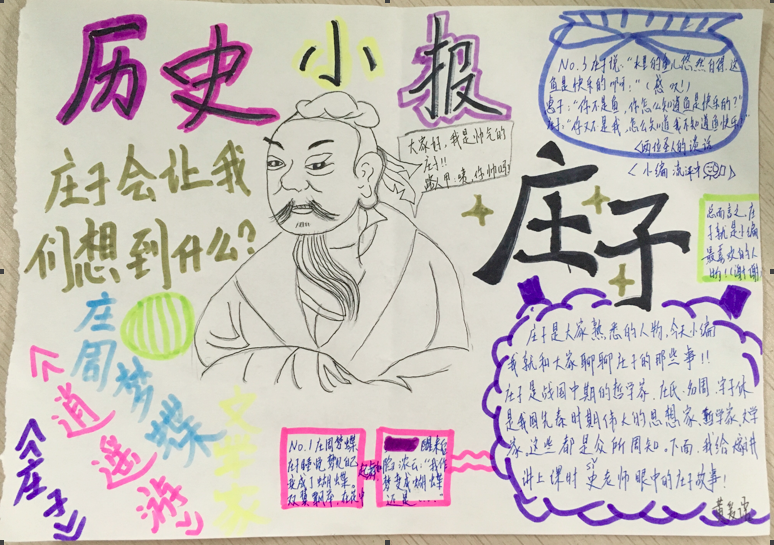 历史小报
庄子会让我
们想到什么？
大家好，我是帅气的
庄子!!
路人甲:嗯,你帅吗?
No.3 庄子说:“水里的鱼儿悠然自得,这
鱼是快乐的啊!”
惠子:“你不是鱼,你怎么知道鱼是快乐的?”
庄子:“你又不是我,怎么知道我不知道鱼快乐
庄子
总而言之,庄
子就是小编
最喜欢的人
物!!谢谢
庄周梦蝶
《逍遥游》
《庄子》
文学家
No.1 庄周梦蝶
庄子睡觉,梦见自己
变成了蝴蝶。
醒来后
“我作
梦变成蝴蝶
还是……”
庄子是大家熟悉的人物,今天小编
我就和大家聊聊庄子的那些事!!
庄子是战国中期的哲学家,庄氏,名周,字子休
是我国先秦时期伟大的思想家、哲学家、文学
家,这些都是众所周知。下面,我给
讲上课时 史老师眼中的庄子故事!